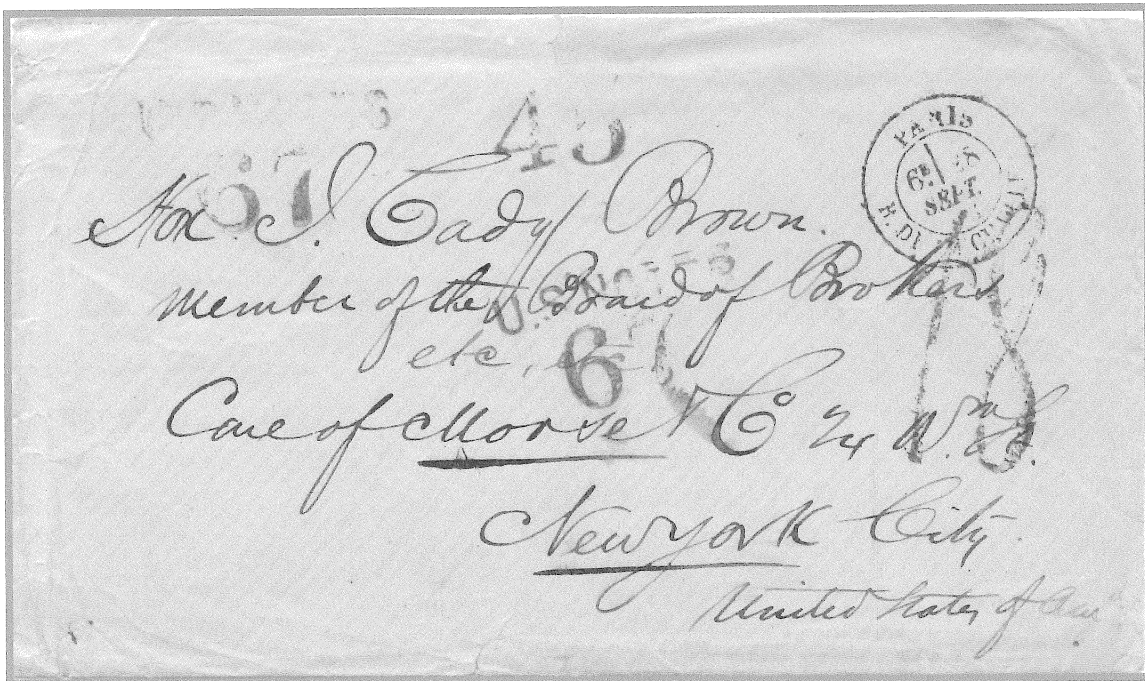 45
67
PARIS
6E
SEPT.
R. DU
Hon. J. Cady Brown.
member of the Board of Brokers
U.S. NOTES
etc,
6
18
Care of Morse & Co 24 Wm St.
New York City.
United States of Am